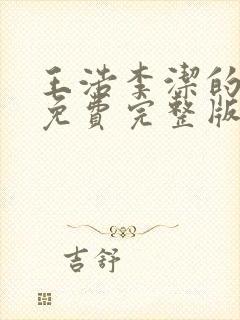 王浩李潔的
免費完整版
吉舒